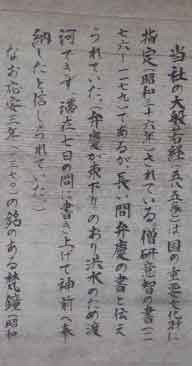 当社の大般若経(五八五巻)は国の重要文化財に
指定(昭和三十六年)されている僧研意智の書(一一
七六ー一一七九)であるが長い間弁慶の書と伝え
られていた。(弁慶が東下りのおり洪水のため渡
河できず、滞在七日の間に書き上げて神前へ奉
納したと信じられていた。)
なお応安三年(一三七〇)の銘のある梵鐘(昭和